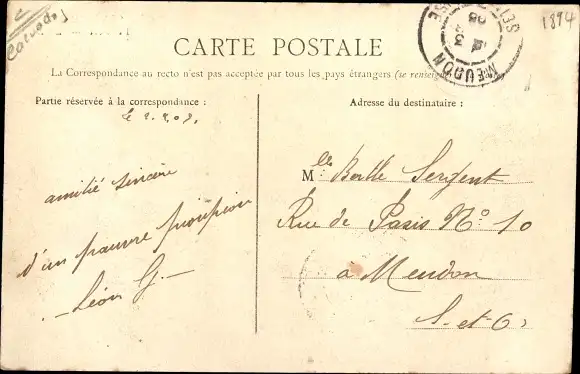 1894
CARTE POSTALE
La Correspondance au recto n'est pas acceptée par tous les pays étrangers (se renseign
Partie réservée à la correspondance :
Adresse du destinataire :
amitié sincère
d'un pauvre pioupiou
Léon G.
Mlle Berthe Sergent
Rue de Paris No 10
à Meudon
S.-et-O.
MEUDON
SEINE